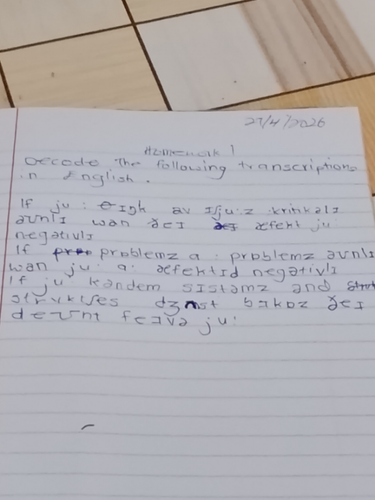 27/4/2026
Homework 1
Decode the following transcriptions
in English.
If ju: θɪŋk av ɪʃju:z kritikəlɪ
əʊnlɪ wən ðeɪ æfekt ju
negətɪvlɪ
If problemz a: problemz əʊnlɪ
wən ju: a: æfektɪd negətɪvlɪ
If ju: kəndem sɪstəmz and
dʒʌst bɪkɒz ðeɪ
ju: